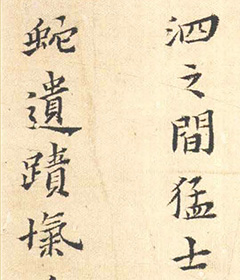 泗之間猛士
蛇遺蹟氣